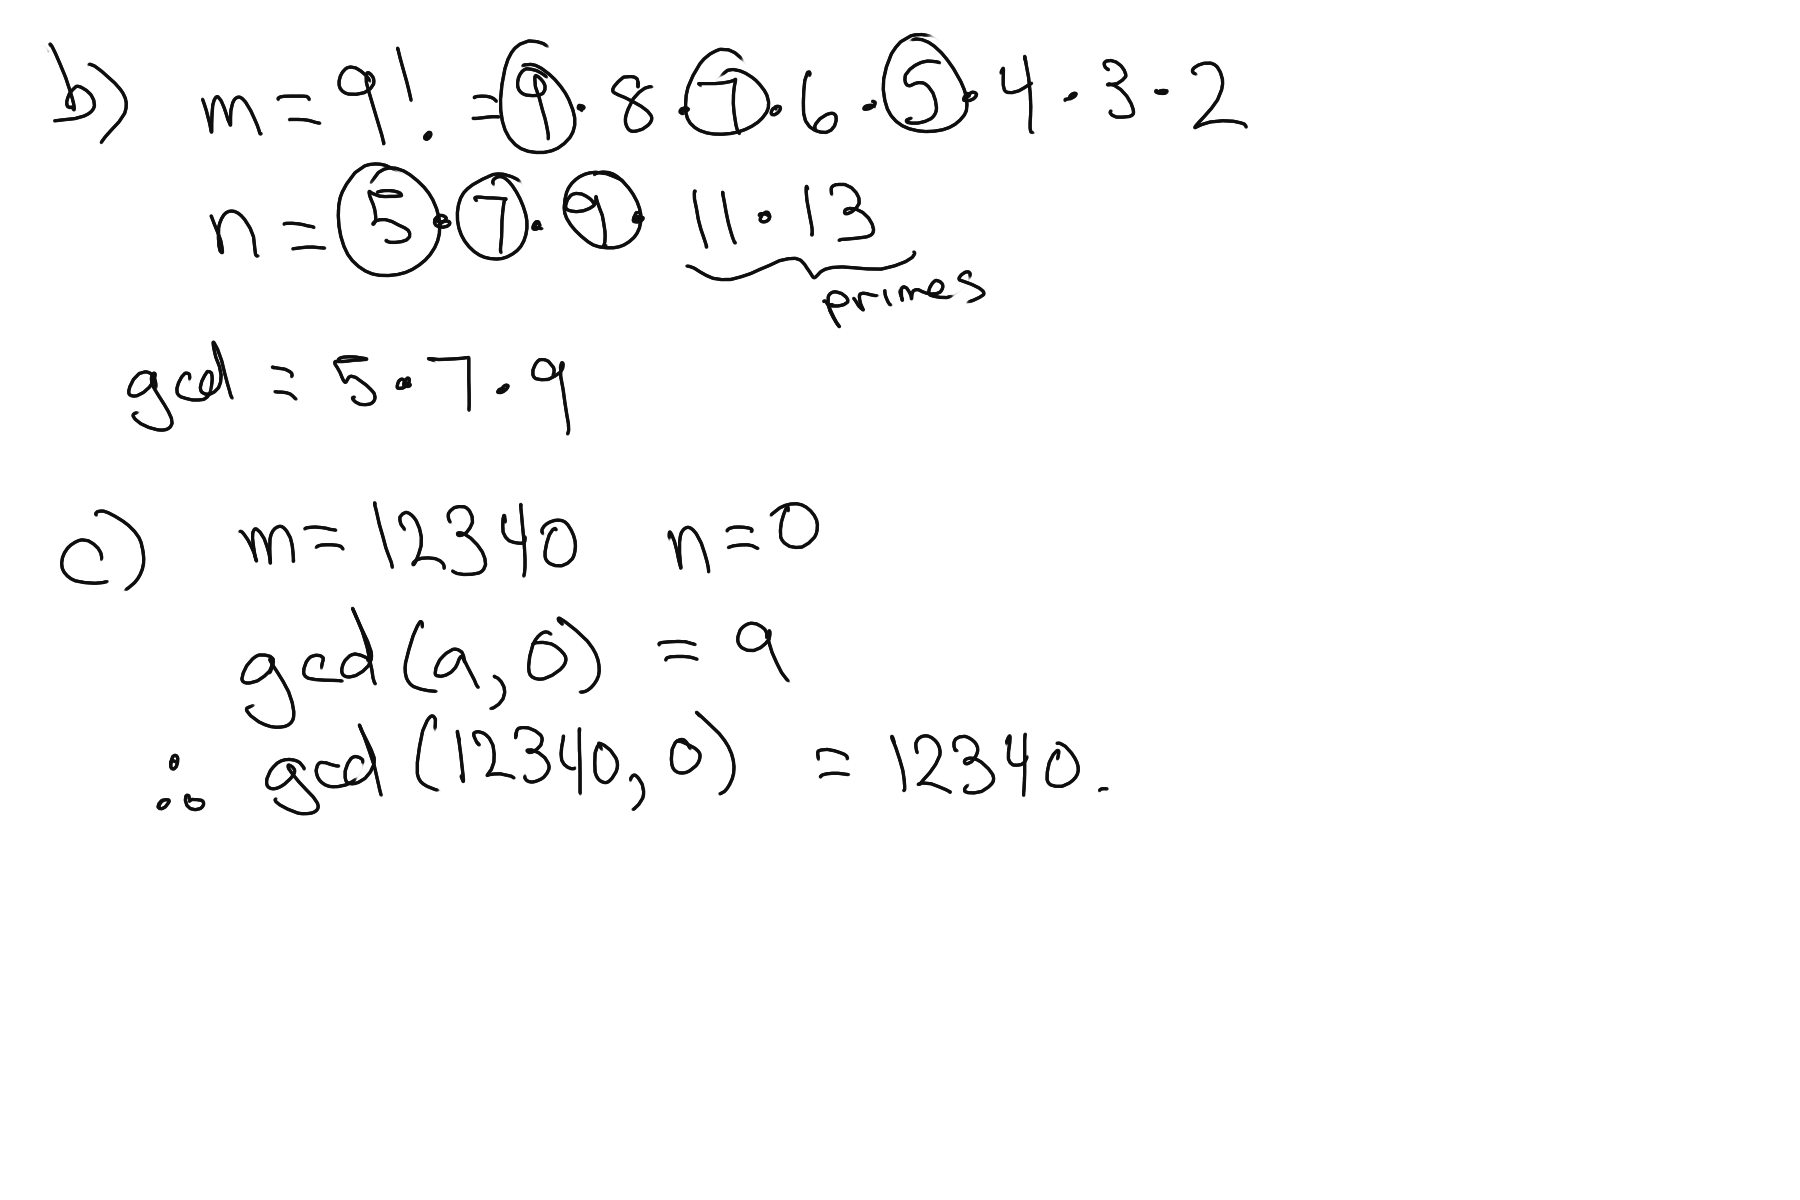 b) m = 9! = 9 · 8 · 7 · 6 · 5 · 4 · 3 · 2
n = 5 · 7 · 9 · 11 · 13
primes
gcd = 5 · 7 · 9
c) m = 12340 n = 0
gcd(a, 0) = a
∴ gcd(12340, 0) = 12340.